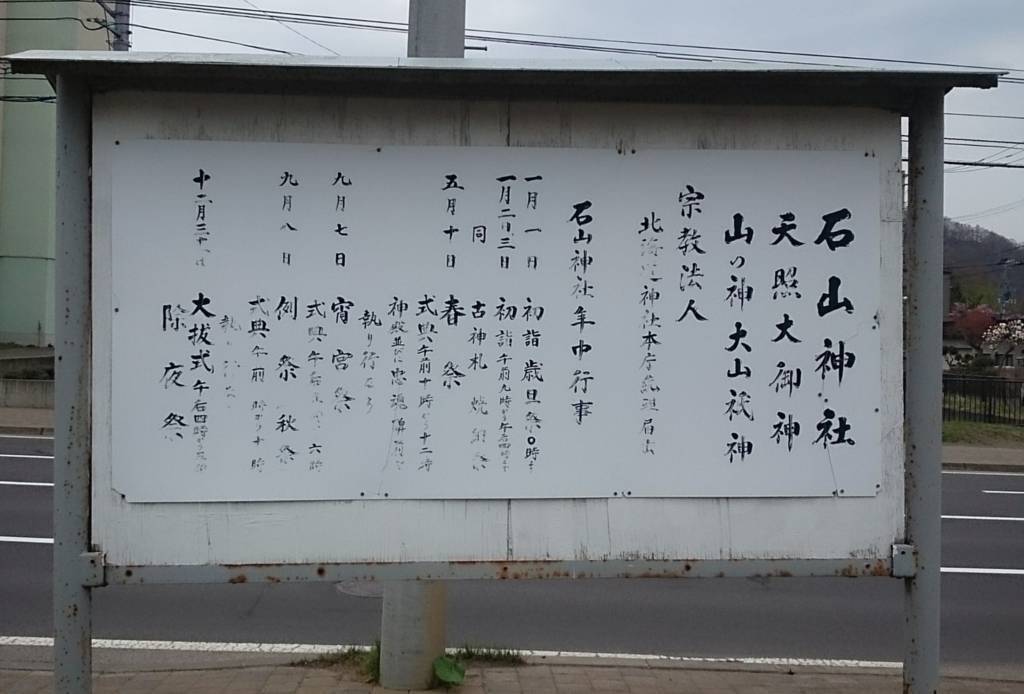 石山神社
天照大御神
山の神大山祇神
宗教法人
北海道神社本庁
石山神社年中行事
一月一日 初詣歳旦祭0時
一月二日三日 初詣午前九時
同 古神札焼納祭
五月十日 春祭
式典午前十時から十二時
神殿並びに忠魂碑前
執り行
九月七日 宵宮祭
式典午后 六時
九月八日 例祭 秋祭
式典午前 時 十時
大祓式午后四時
除夜祭